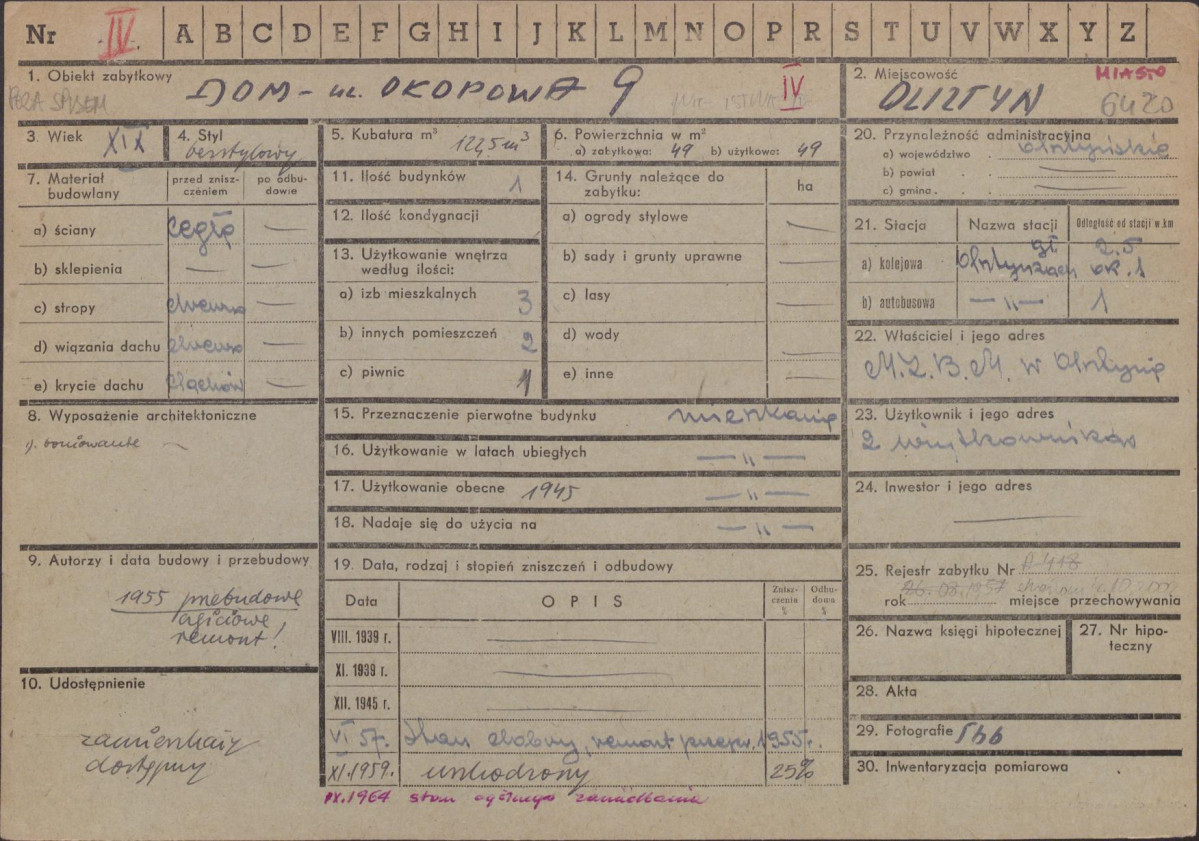 Nr IV. A B C D E F G H I J K L M N O P R S T U V W X Y Z
1. Obiekt zabytkowy
DOM - ul. OKOPOWA 9 IV
POZA SPISEM
2. Miejscowość MIASTO
OLSZTYN 6420
3. Wiek XIX
4. Styl
bezstylowy
5. Kubatura m³
122,5 m³
6. Powierzchnia w m²
a) zabytkowa: 49 b) użytkowa: 49
7. Materiał budowlany
przed zniszczeniem
po odbudowie
a) ściany cegła —
b) sklepienia — —
c) stropy drewno —
d) wiązania dachu drewno —
e) krycie dachu dachów. —
8. Wyposażenie architektoniczne
1). boniowanie —
9. Autorzy i data budowy i przebudowy
1955 przebudowa
częściowa
remont!
10. Udostępnienie
zamieszkały
dostępny
11. Ilość budynków 1
12. Ilość kondygnacji
13. Użytkowanie wnętrza
według ilości:
a) izb mieszkalnych 3
b) innych pomieszczeń 2
c) piwnic 1
14. Grunty należące do
zabytku: ha
a) ogrody stylowe —
b) sady i grunty uprawne —
c) lasy —
d) wody —
e) inne —
15. Przeznaczenie pierwotne budynku mieszkanie
16. Użytkowanie w latach ubiegłych — „ —
17. Użytkowanie obecne 1945 — „ —
18. Nadaje się do użycia na — „ —
19. Data, rodzaj i stopień zniszczeń i odbudowy
Data O P I S Zniszczenia % Odbudowa %
VIII. 1939 r. —
XI. 1939 r. —
XII. 1945 r. —
VI 57. Stan dobry, remont przepr. 1955 r.
XI.1959. uszkodzony 25%
IX.1964 stan ogólnego zaniedbania
20. Przynależność administracyjna
a) województwo olsztyńskie
b) powiat —
c) gmina —
21. Stacja Nazwa stacji Odległość od stacji w km
a) kolejowa Olsztyn gł. 2.5
zach. ok. 1
b) autobusowa — „ — 1
22. Właściciel i jego adres
M.Z.B.M. w Olsztynie
23. Użytkownik i jego adres
2 użytkowników
24. Inwestor i jego adres
—
25. Rejestr zabytku Nr A-418
rok 26.08.1957 miejsce przechowywania
26. Nazwa księgi hipotecznej
27. Nr hipoteczny
28. Akta
29. Fotografie 5bb
30. Inwentaryzacja pomiarowa